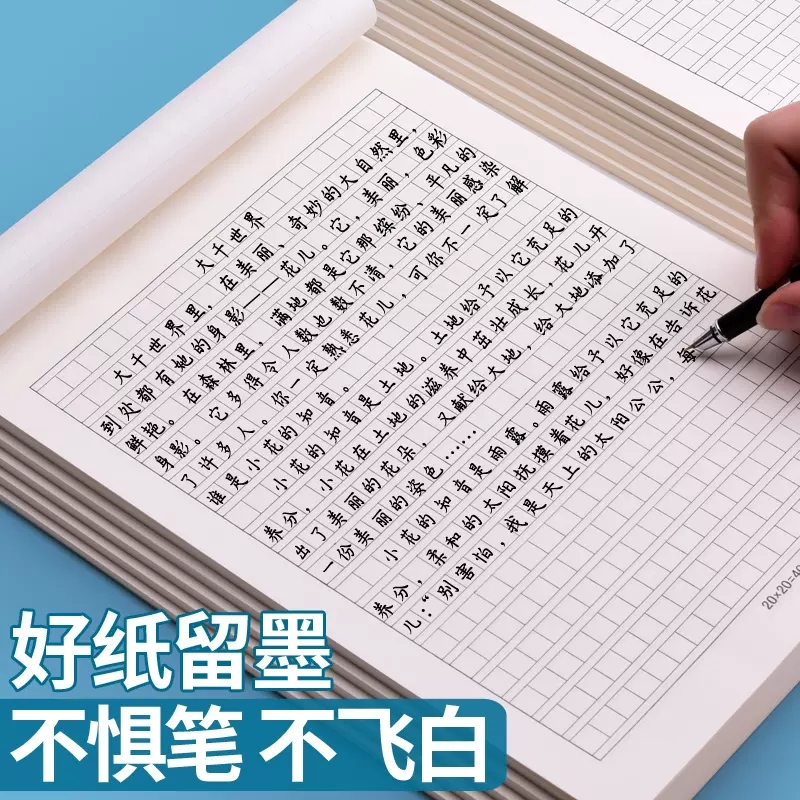 大千世界
大千世界里，在美丽、奇妙的大自然里，
到处都有她的身影——花儿。它，美丽，色彩
鲜艳。在森林里，满地都是它那缤纷、平凡的
身影。它多得令人数也数不清，它的美丽感染
了许多人。你一定熟悉花儿，可你不一定了解
谁是小花的知音。
小花的知音是土地。土地给予以它充足的
养分，小花在土地的滋养中茁壮成长，花儿开
出了美丽的花朵，又献给大地，给大地添加了
一份美丽的姿色……
小花的知音是雨露。雨露给予以它充足的
养分，柔和的太阳抚摸着花儿，好像在告诉花
儿：“别害怕，我是天上的太阳公公，每
20×20=40
好纸留墨
不惧笔 不飞白